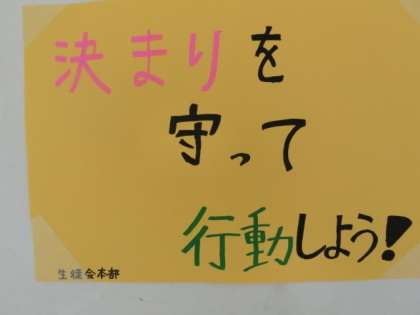 決まりを
守って
行動しよう!
生徒会本部